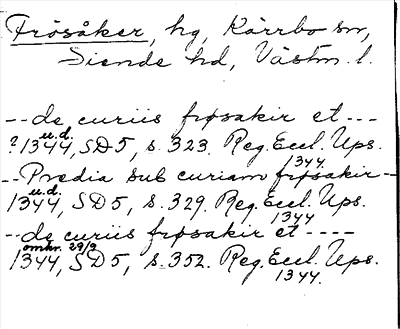 Frösåker, hg, Kärrbo sn,
Siende hd, Västm. l.
-- de curiis frøsakir et ---
u.d.
? 1344, SD 5, s. 323. Reg. Eccl. Ups.
1344
-- Prædia sub curiam frøsakir --
u.d.
1344, SD 5, s. 329. Reg. Eccl. Ups.
1344
-- de curiis frøsakir et ----
omkr. 29/3
1344, SD 5, s. 352. Reg. Eccl. Ups.
1344.